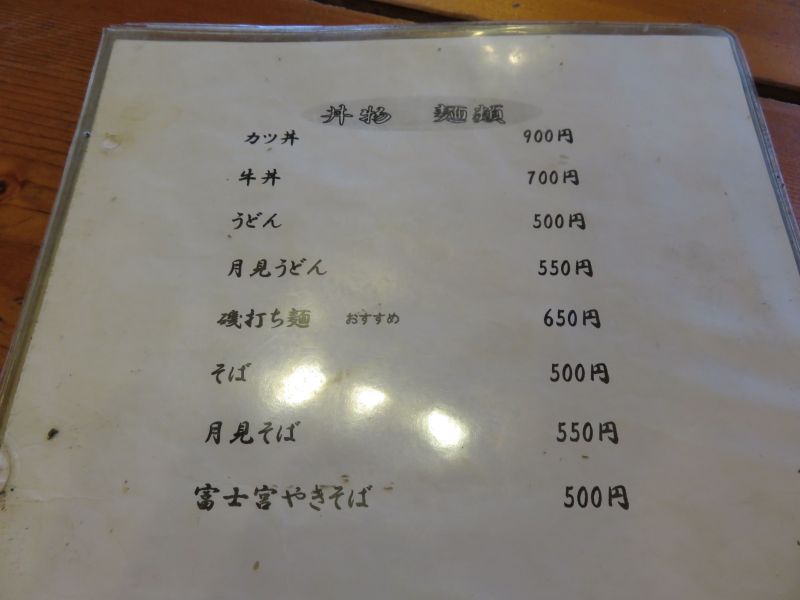 丼物　麺類
カツ丼　900円
牛丼　700円
うどん　500円
月見うどん　550円
磯打ち麺　おすすめ　650円
そば　500円
月見そば　550円
富士宮やきそば　500円